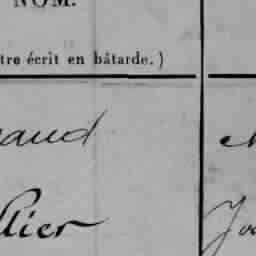 NOM.
tre écrit en bâtarde.)
aud
llier